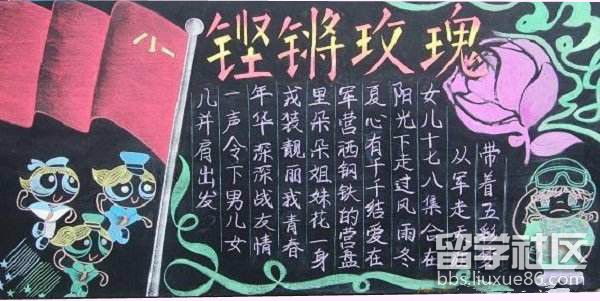 铿锵玫瑰
带着五彩
从军走
女儿十七八集合在
阳光下走过风雨冬
夏心有千千结爱在
军营洒钢铁的营盘
里朵朵姐妹花一身
戎装靓丽我青春
年华深深战友情
一声令下男儿女
儿并肩出发
留学社区
bbs.liuxue86.com